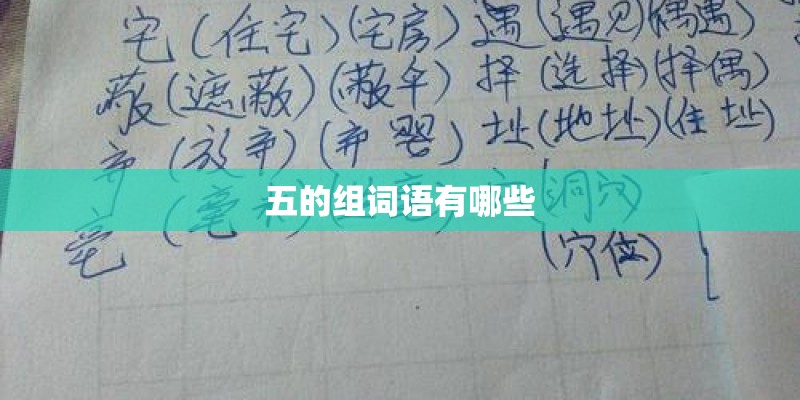 宅(住宅)(宅房)遇(遇见)(偶遇)
蔽(遮蔽)(蔽伞)择(选择)(择偶)
弃(放弃)(弃婴)址(地址)(住址)
五的组词语有哪些
毫(毫 (洞穴)
(穴位)